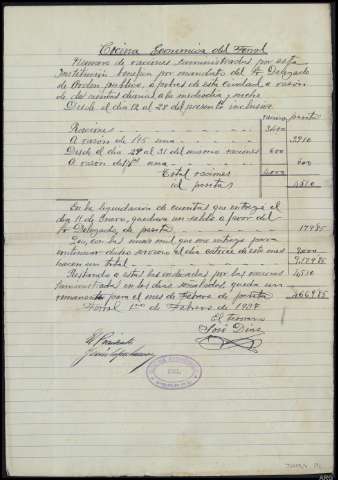 Cocina Económica del Ferrol
Número de raciones suministradas por esta
Institución benéfica por mandato del Sr. Delegado
de Orden público, a pobres de esta Ciudad a razón
de dos raciones diarias a la mediodía y noche
Desde el día 12 al 28 del presente inclusive
raciones pesetas
Raciones 3400
A razón de 1'15 una 3910
Desde el día 29 al 31 del mismo raciones 600
A razón de una 600
Total raciones 4000
id pesetas 4510
En la liquidación de cuentas que entregué el
día 11 de Enero, quedaba un saldo a favor del
Sr Delegado, de pesetas 179'85
con las nueve mil que me entrega para
continuar dicho servicio el día catorce de este mes 9000
hacen un total 9,179'85
Restando a estas las ordenadas por las raciones 4510
suministradas en los días señalados queda un
remanente para el mes de Febrero de pesetas 4,669'85
Ferrol 1º de Febrero de 1937
El tesorero
José Díaz
El Presidente
FERROL